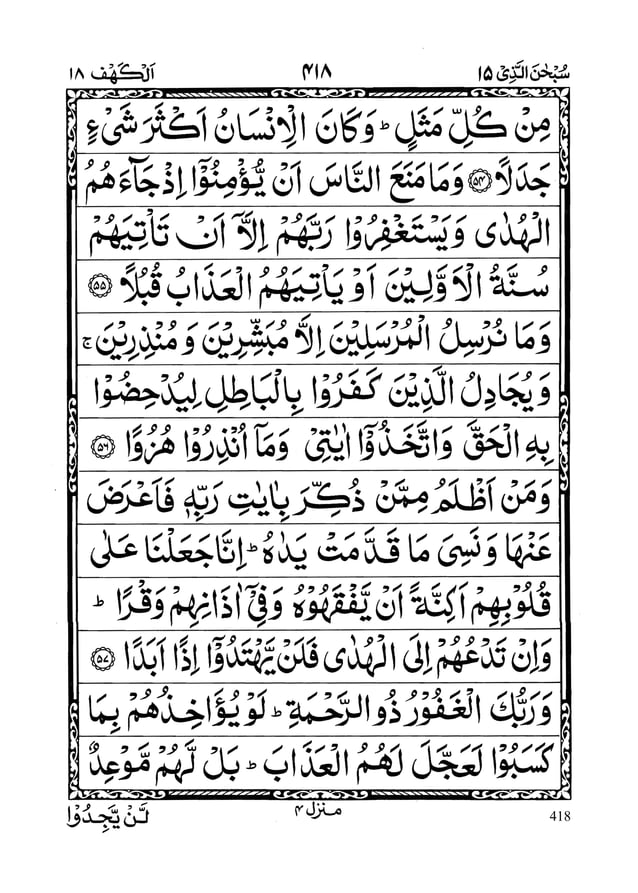 سُبْحٰنَ الَّذِىْ ١٥ ۴١٨ اَلْكَهْف ١٨
مِنْ كُلِّ مَثَلٍ ؕ وَ كَانَ الْاِنْسَانُ اَكْثَرَ شَىْءٍ
جَدَلًا ﴿۵۴﴾ وَمَا مَنَعَ النَّاسَ اَنْ يُّؤْمِنُوْۤا اِذْ جَآءَهُمُ
الْهُدٰى وَيَسْتَغْفِرُوْا رَبَّهُمْ اِلَّاۤ اَنْ تَاْتِيَهُمْ
سُنَّةُ الْاَوَّلِيْنَ اَوْ يَاْتِيَهُمُ الْعَذَابُ قُبُلًا ﴿۵۵﴾
وَمَا نُرْسِلُ الْمُرْسَلِيْنَ اِلَّا مُبَشِّرِيْنَ وَ مُنْذِرِيْنَ ۚ
وَيُجَادِلُ الَّذِيْنَ كَفَرُوْا بِالْبَاطِلِ لِيُدْحِضُوْا
بِهِ الْحَقَّ وَاتَّخَذُوْۤا اٰيٰتِىْ وَمَاۤ اُنْذِرُوْا هُزُوًا ﴿۵۶﴾
وَمَنْ اَظْلَمُ مِمَّنْ ذُكِّرَ بِاٰيٰتِ رَبِّهٖ فَاَعْرَضَ
عَنْهَا وَنَسِىَ مَا قَدَّمَتْ يَدٰهُ ؕ اِنَّا جَعَلْنَا عَلٰى
قُلُوْبِهِمْ اَكِنَّةً اَنْ يَّفْقَهُوْهُ وَفِىْۤ اٰذَانِهِمْ وَقْرًا ؕ
وَاِنْ تَدْعُهُمْ اِلَى الْهُدٰى فَلَنْ يَّهْتَدُوْۤا اِذًا اَبَدًا ﴿۵۷﴾
وَرَبُّكَ الْغَفُوْرُ ذُو الرَّحْمَةِ ؕ لَوْ يُؤَاخِذُهُمْ بِمَا
كَسَبُوْا لَعَجَّلَ لَهُمُ الْعَذَابَ ؕ بَلْ لَّهُمْ مَّوْعِدٌ
418 منزل ۴ لَّنْ يَّجِدُوْا